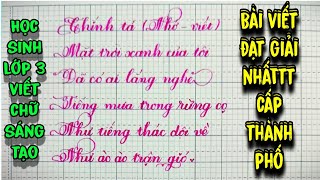 HỌC
SINH
LỚP 3
VIẾT
CHỮ
SÁNG
TẠO
Chính tả (Nhớ - viết)
Mặt trời xanh của tôi
Đã có ai lắng nghe
Tiếng mưa trong rừng cọ
Như tiếng thác dội về
Như ào ào trận gió.
BÀI VIẾT
ĐẠT GIẢI
NHẤTTT
CẤP
THÀNH
PHỐ